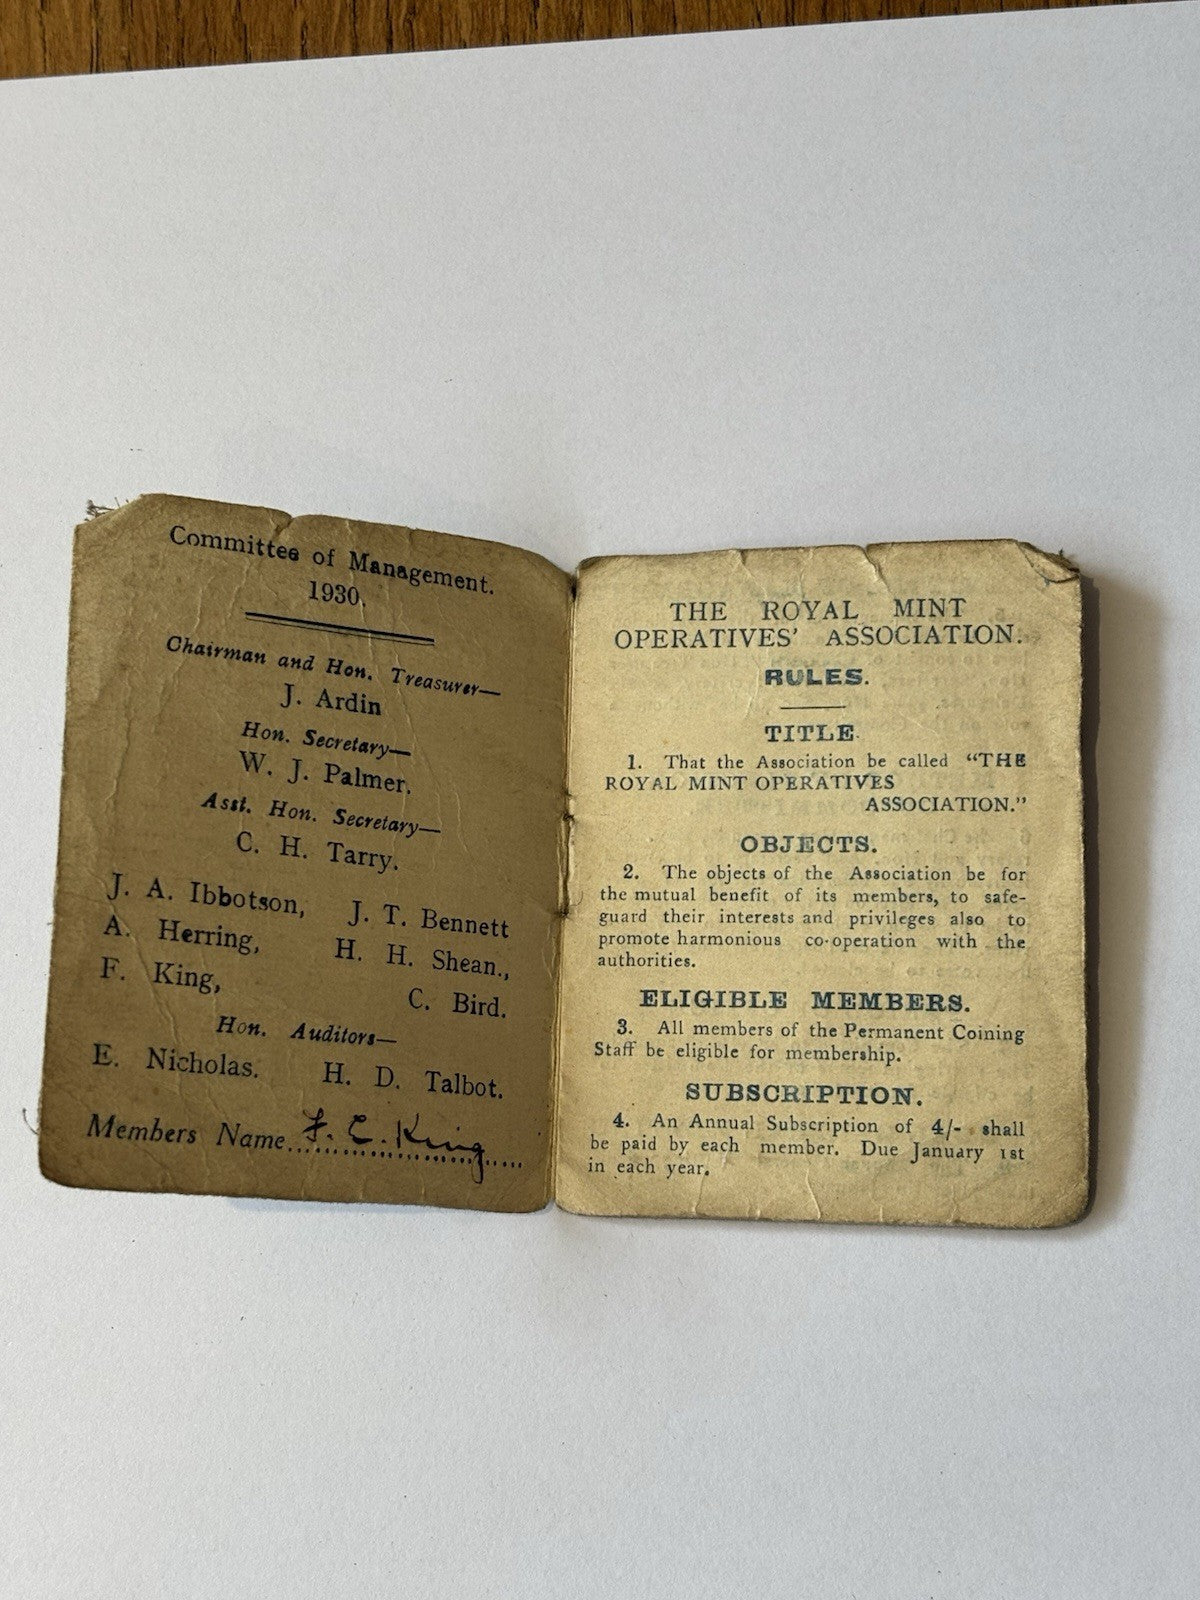 Committee of Management.
1930.
Chairman and Hon. Treasurer—
J. Ardin
Hon. Secretary—
W. J. Palmer.
Asst. Hon. Secretary—
C. H. Tarry.
J. A. Ibbotson, J. T. Bennett
A. Herring, H. H. Shean.,
F. King, C. Bird.
Hon. Auditors—
E. Nicholas. H. D. Talbot.
Members Name F. C. King
THE ROYAL MINT
OPERATIVES' ASSOCIATION.
RULES.
TITLE.
1. That the Association be called “THE
ROYAL MINT OPERATIVES
ASSOCIATION.”
OBJECTS.
2. The objects of the Association be for
the mutual benefit of its members, to safe-
guard their interests and privileges also to
promote harmonious co-operation with the
authorities.
ELIGIBLE MEMBERS.
3. All members of the Permanent Coining
Staff be eligible for membership.
SUBSCRIPTION.
4. An Annual Subscription of 4/- shall
be paid by each member. Due January 1st
in each year.